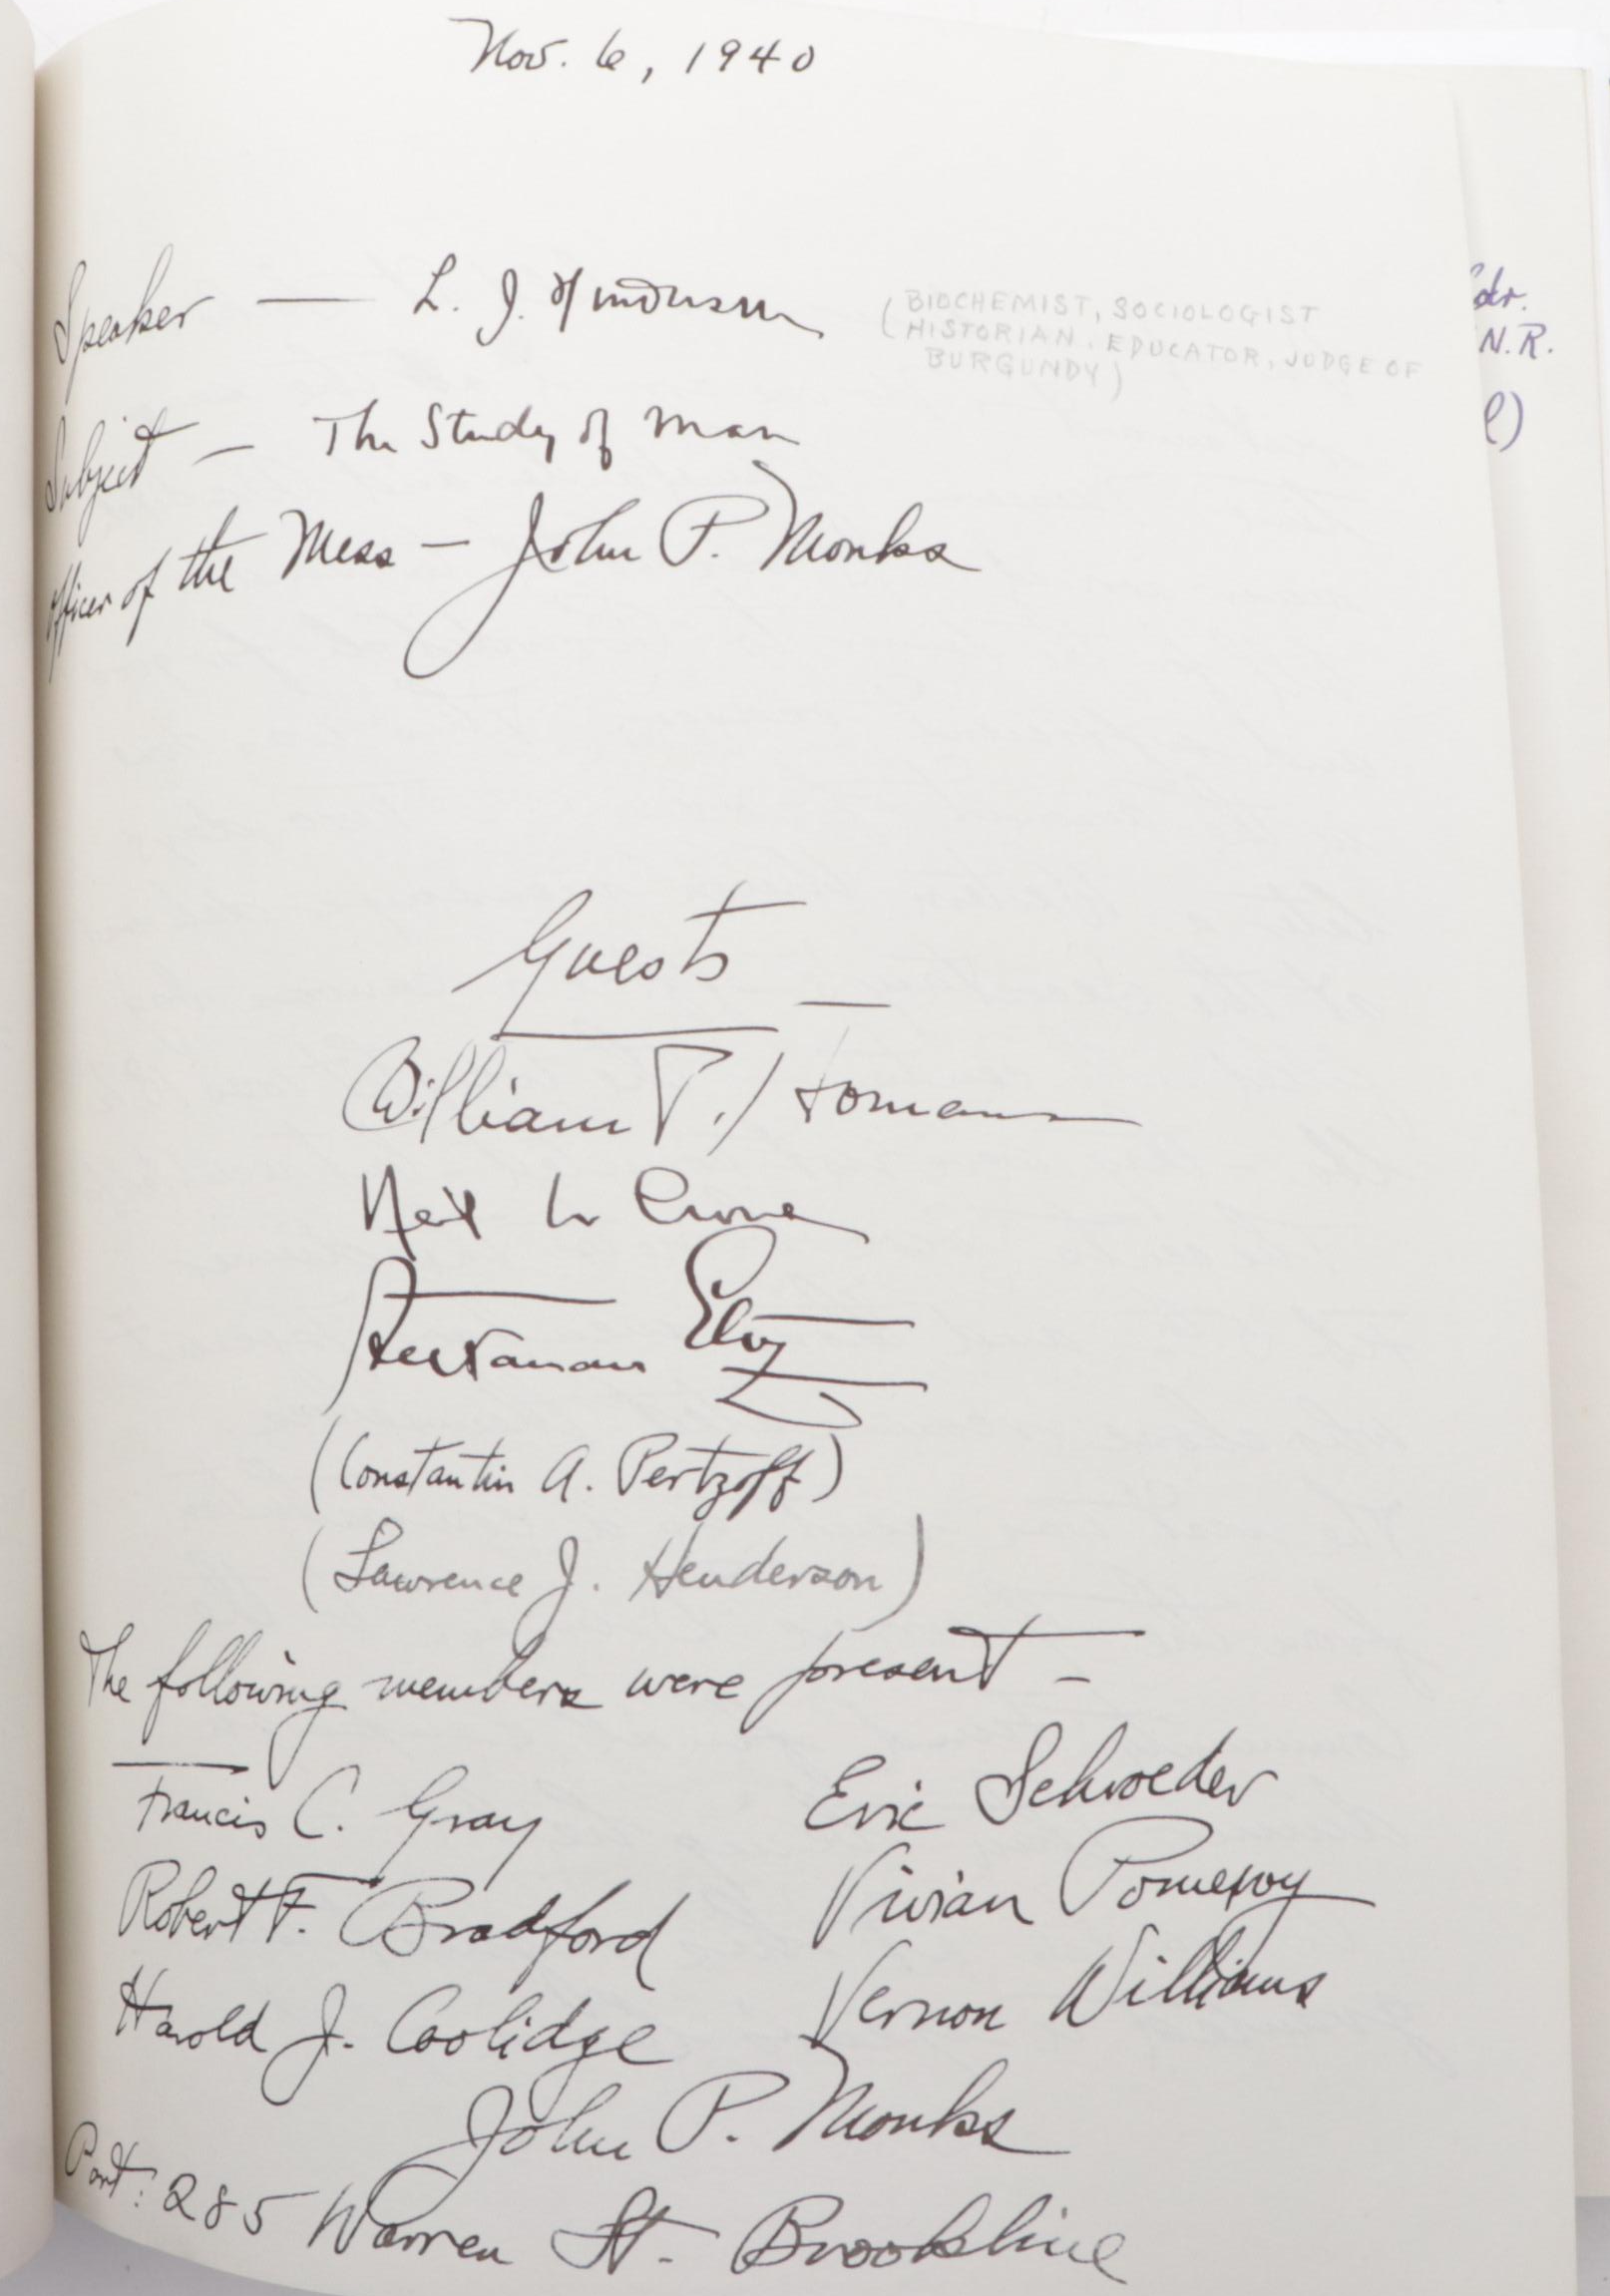 Nov. 6, 1940
Speaker — L. J. Henderson
(BIOCHEMIST, SOCIOLOGIST
HISTORIAN, EDUCATOR, JUDGE OF
BURGUNDY)
Subject — The Study of Man
Officer of the Mess — John P. Monks
Guests —
William P. Homans
(Constantin A. Pertzoff)
(Lawrence J. Henderson)
The following members were present —
Francis C. Gray
Robert F. Bradford
Harold J. Coolidge
Eric Schroeder
Vivian Pomeroy
Vernon Williams
John P. Monks
Port: 285 Warren St. Brookline
N.R.